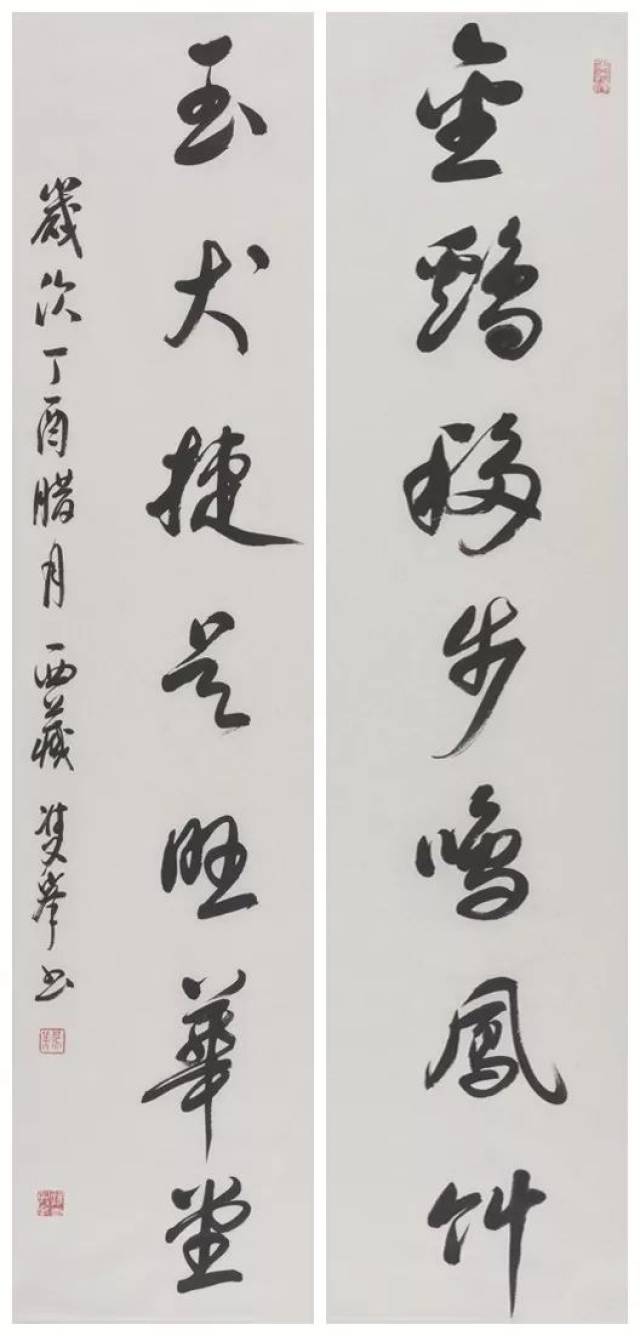 金鷄移步鳴鳳竹
玉犬捷足旺華堂
歲次丁酉腊月西藏雙書